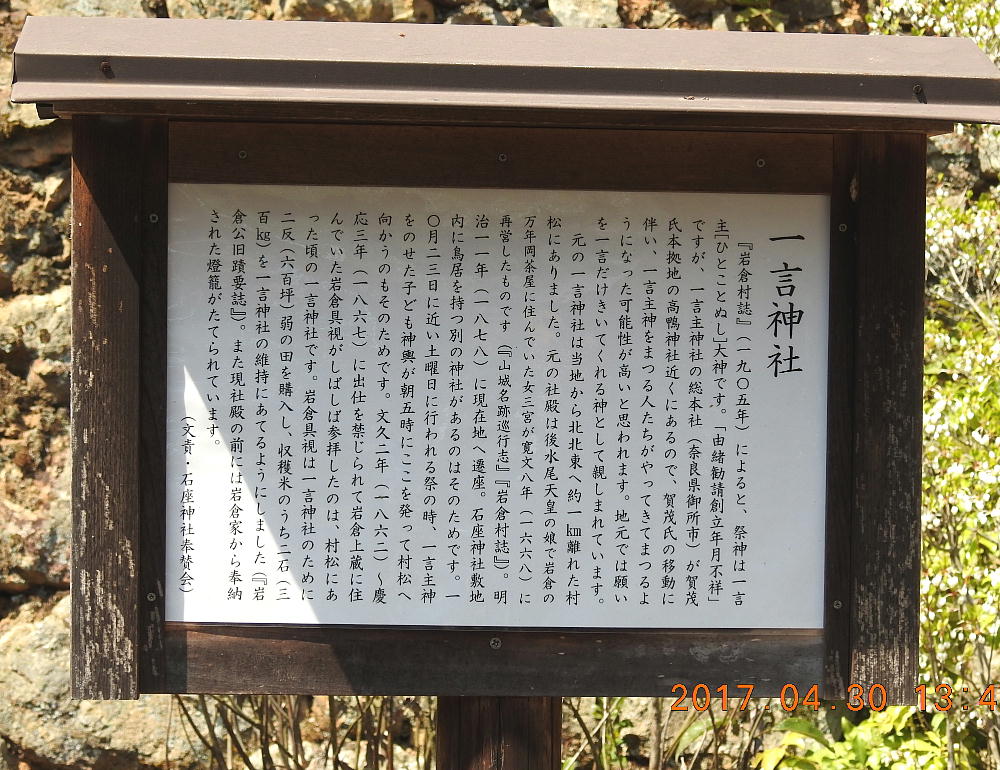 一言神社
『岩倉村誌』（一九〇五年）によると、祭神は一言
主「ひとことぬし」大神です。「由緒勧請創立年月不祥」
ですが、一言主神社の総本社（奈良県御所市）が賀茂
氏本拠地の高鴨神社近くにあるので、賀茂氏の移動に
伴い、一言主神をまつる人たちがやってきてまつるよ
うになった可能性が高いと思われます。地元では願い
を一言だけきいてくれる神として親しまれています。
元の一言神社は当地から北北東へ約一㎞離れた村
松にありました。元の社殿は後水尾天皇の娘で岩倉の
万年岡茶屋に住んでいた女三宮が寛文八年（一六六八）に
再営したものです（『山城名跡巡行志』『岩倉村誌』）。明
治一一年（一八七八）に現在地へ遷座。石座神社敷地
内に鳥居を持つ別の神社があるのはそのためです。一
〇月二三日に近い土曜日に行われる祭の時、一言主神
をのせた子ども神輿が朝五時にここを発って村松へ
向かうのもそのためです。文久二年（一八六二）～慶
応三年（一八六七）に出仕を禁じられて岩倉上蔵に住
んでいた岩倉具視がしばしば参拝したのは、村松にあ
った頃の一言神社です。岩倉具視は一言神社のために
二反（六百坪）弱の田を購入し、収穫米のうち二石（三
百㎏）を一言神社の維持にあてるようにしました（『岩
倉公旧蹟要誌』）。また現社殿の前には岩倉家から奉納
された燈籠がたてられています。
（文責・石座神社奉賛会）
2017.04.30 13:4